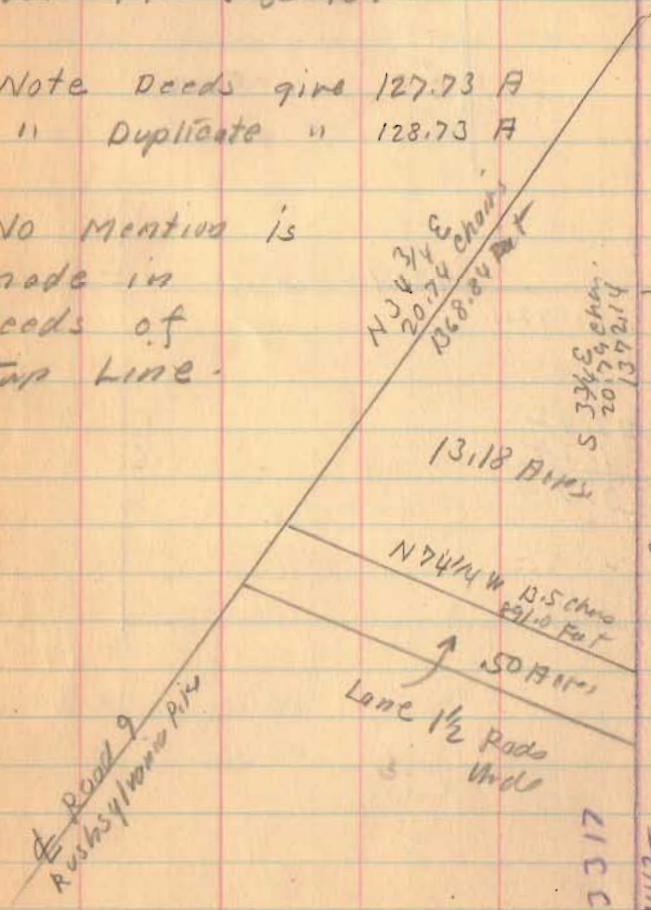 Note Deeds give 127.73 A
" Duplicate " 128.73 A
No Mention is
made in
Deeds of
Line.
N 34 3/4 E
20.74 chains
1368.84 Feet
S 3 3/4 E
20.79 chan.
1372.14
13.18 Acres
N 74 1/4 W 13.5 chans
891.0 Feet
.50 Acres
Lane 1 1/2 Rods
Wide
℄ Road 9
Rushsylvania Pike
3317